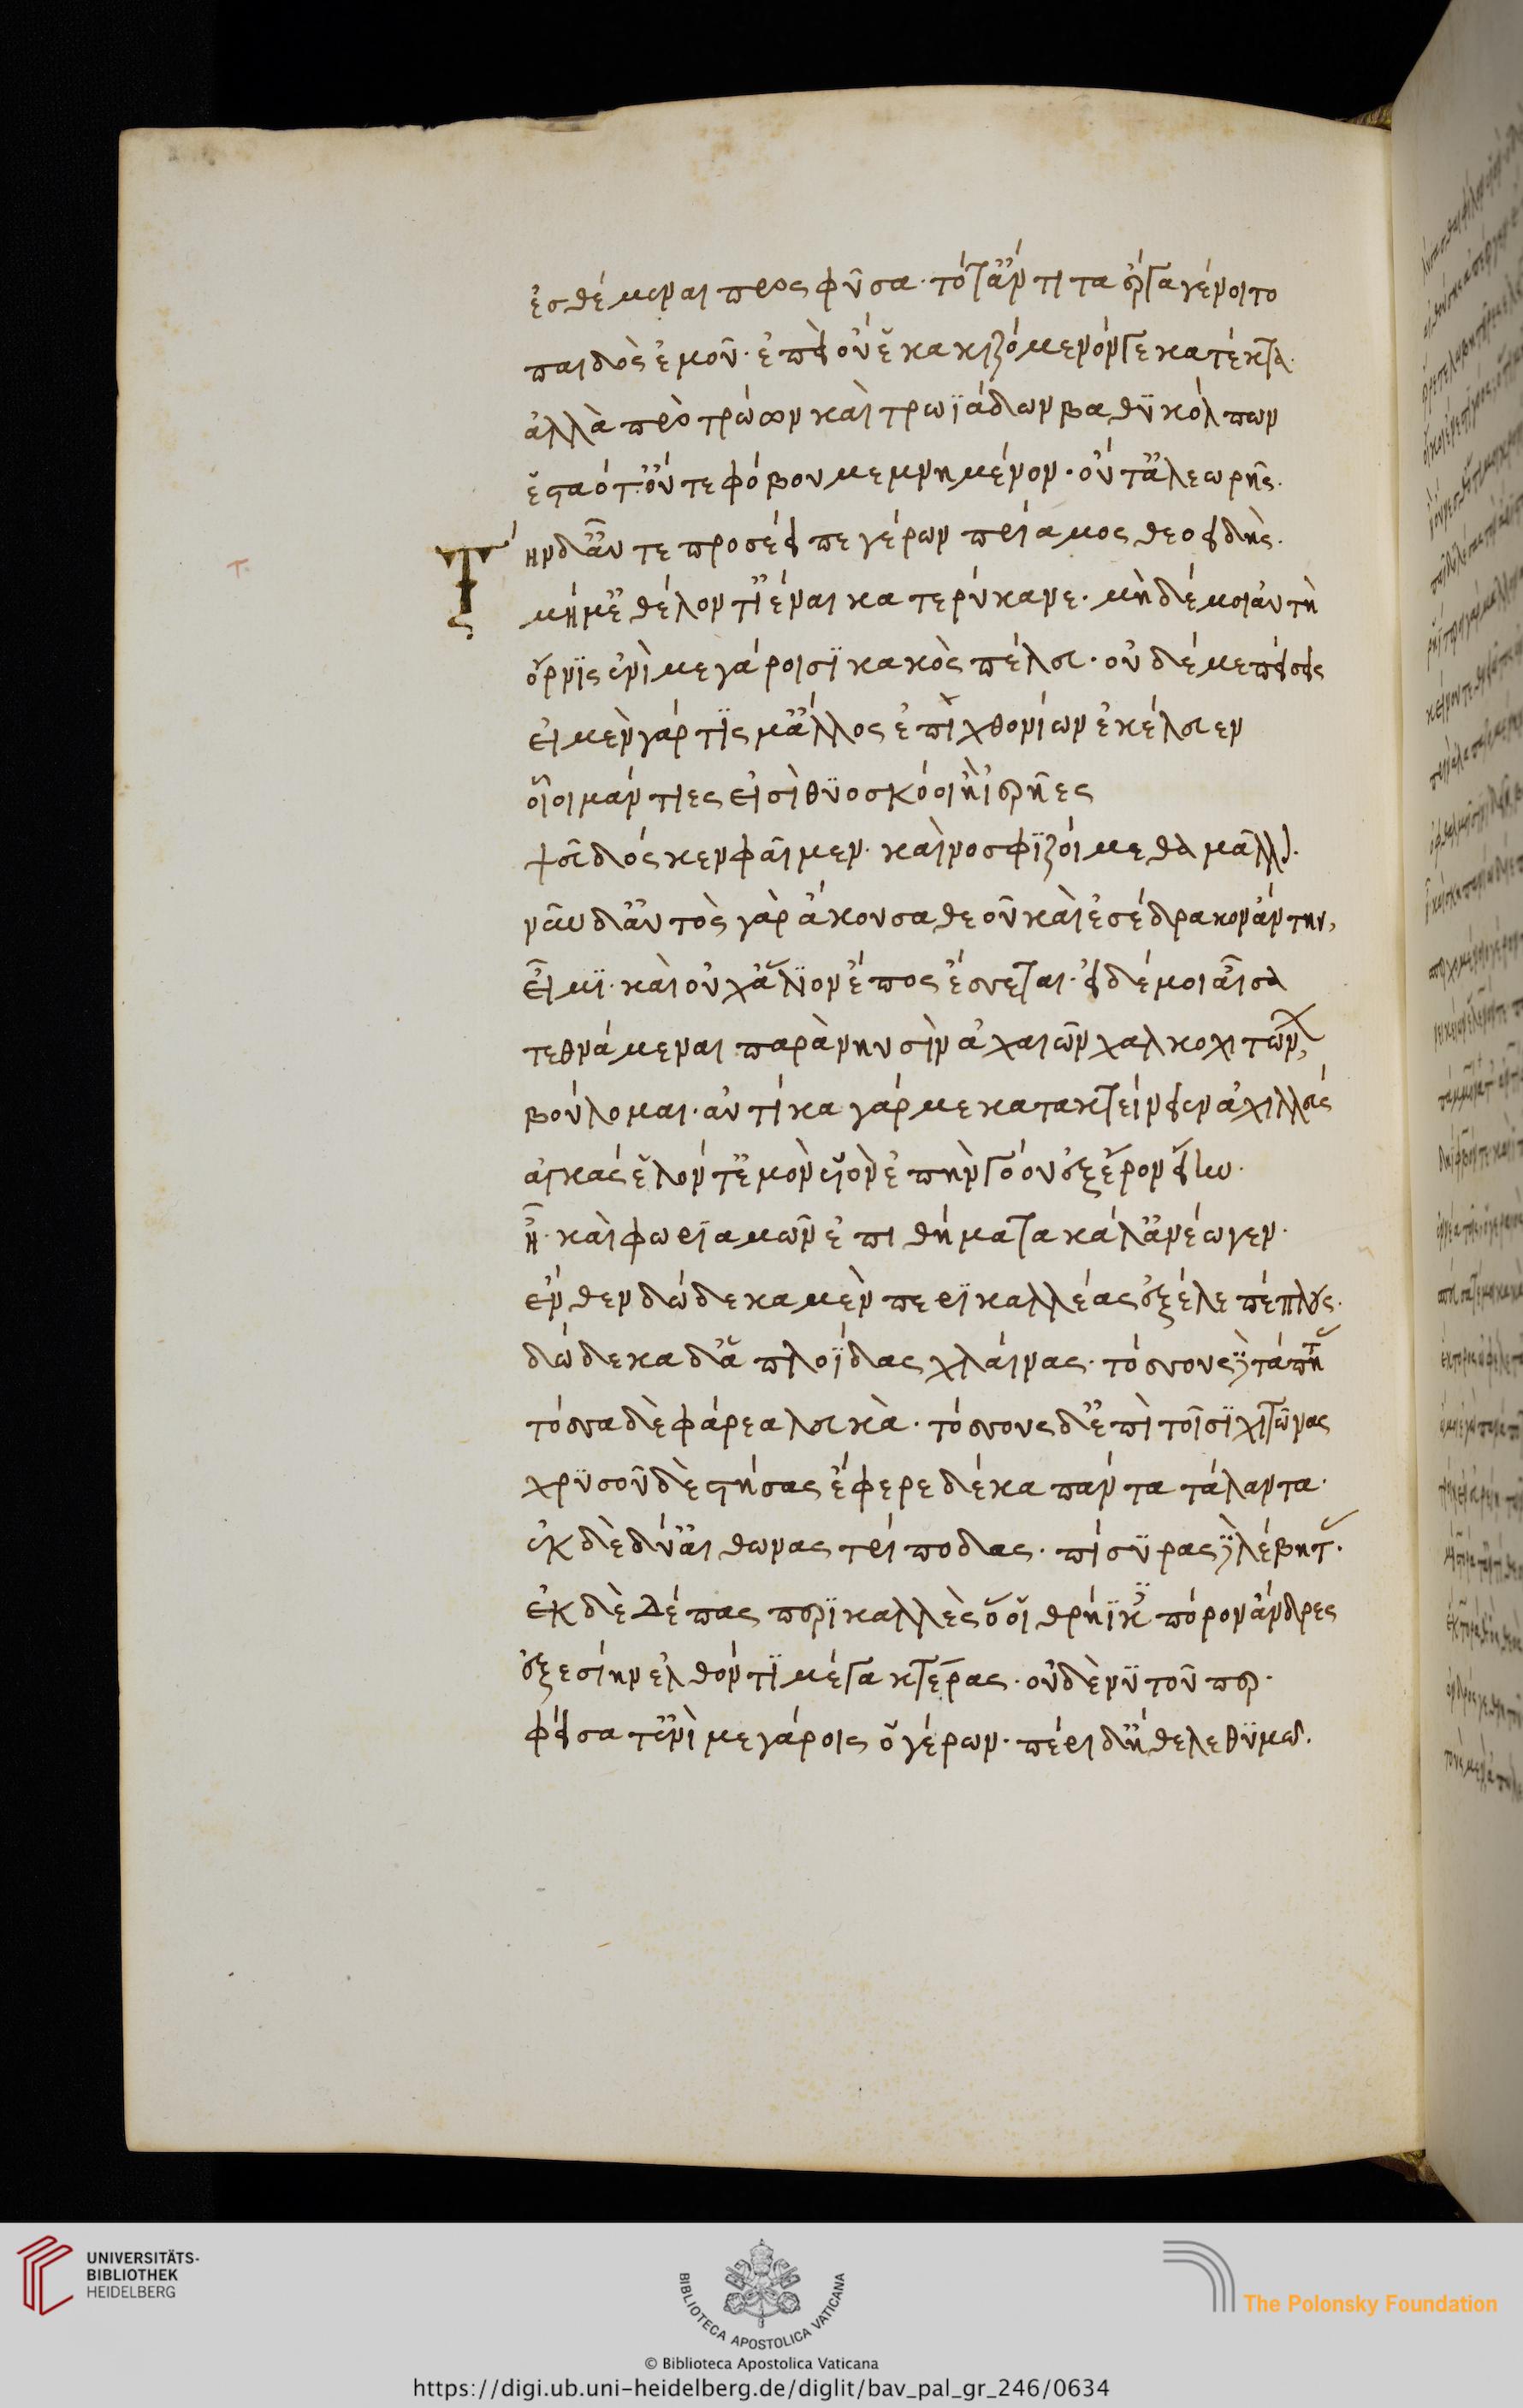 ἐσθέμεναι προσφῦσα· τότ᾽ ἄντιτα ἔργα γένοιτο
παιδὸς ἐμοῦ· ἐπεὶ οὔ ἑ κακιζόμενόν γε κατέκτα·
ἀλλὰ πρὸ τρώων καὶ τρωϊάδων βαθϋκόλπων
ἑσταότ᾽· οὔτε φόβου μεμνημένον· οὔτ᾽ ἀλεωρῆς·
Τὴν δ᾽ αὖτε προσέειπε γέρων πρίαμος θεοειδής·
μή μ᾽ ἐθέλοντ᾽ ἰέναι κατερύκανε· μὴ δέ μοι αὐτὴ
ὄρνϊς ἐνὶ μεγάροισϊ κακὸς πέλει· οὐδέ με πείσεις
εἰ μὲν γάρ τίς μ᾽ ἄλλος ἐπιχθονίων ἐκέλευεν
ἢ οἳ μάντιές εἰσὶ θϋοσκόοι ἢ ἱερῆες
ψεῦδός κεν φαῖμεν· καὶ νοσφϊζοίμεθα μᾶλλον·
νῦν δ᾽ αὐτὸς γὰρ ἄκουσα θεοῦ καὶ ἐσέδρακον ἄντην,
εἶμϊ· καὶ οὐχ ἅλϊον ἔπος ἔσσεται· εἰ δέ μοι αἶσα
τεθνάμεναι παρὰ νηυσὶν ἀχαιῶν χαλκοχιτώνων
βούλομαι· αὐτίκα γάρ με κατακτείνειεν ἀχιλλεύς
ἀγκὰς ἑλόντ᾽ ἐμὸν υἱὸν ἐπὴν γόου ἐξ ἔρον εἵην·
ἦ· καὶ φωριαμῶν ἐπιθήματα κάλ᾽ ἀνέωγεν·
ἔνθεν δώδεκα μὲν περϊκαλλέας ἔξελε πέπλους·
δώδεκα δ᾽ ἁπλοΐδας χλαίνας· τόσσους δὲ τάπητας
τόσσα δὲ φάρεα λευκὰ· τόσσους δ᾽ ἐπὶ τοῖσϊ χιτῶνας
χρϋσοῦ δὲ στήσας ἔφερε δέκα πάντα τάλαντα·
ἐκ δὲ δύ᾽ αἴθωνας τρίποδας· πίσϋρας δὲ λέβητας·
ἐκ δὲ δέπας περϊκαλλὲς ὅ οἱ θρήϊκες πόρον ἄνδρες
ἐξεσίην ἐλθόντϊ μέγα κτέρας· οὐδέ νϋ τοῦ περ·
φείσατ᾽ ἐνὶ μεγάροις ὁ γέρων· πέρι δ᾽ ἤθελε θϋμῷ·
UNIVERSITÄTS-
BIBLIOTHEK
HEIDELBERG
BIBLIOTECA APOSTOLICA VATICANA
The Polonsky Foundation
© Biblioteca Apostolica Vaticana
https://digi.ub.uni-heidelberg.de/diglit/bav_pal_gr_246/0634